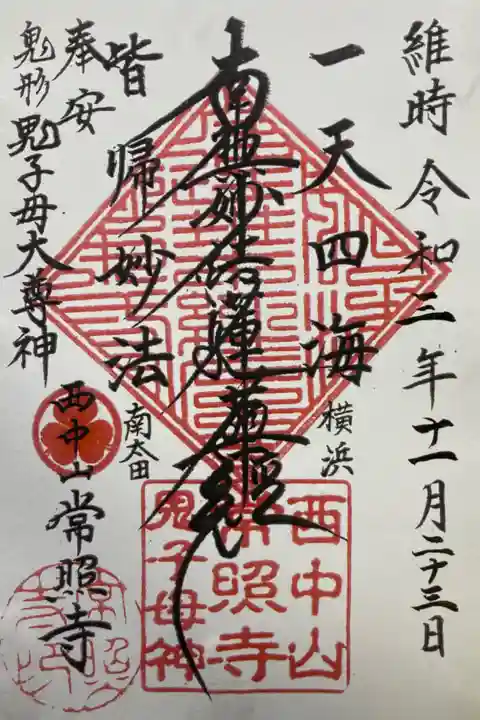 維時 令和三年十一月二十三日
一天四海
横浜
南無妙法蓮華経
皆帰妙法
南太田
奉安
鬼形鬼子母大尊神
西中山常照寺
西中山
常照寺
鬼子母神